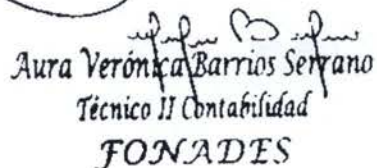 Aura Verónica Barrios Serrano
Técnico II Contabilidad
FONADES